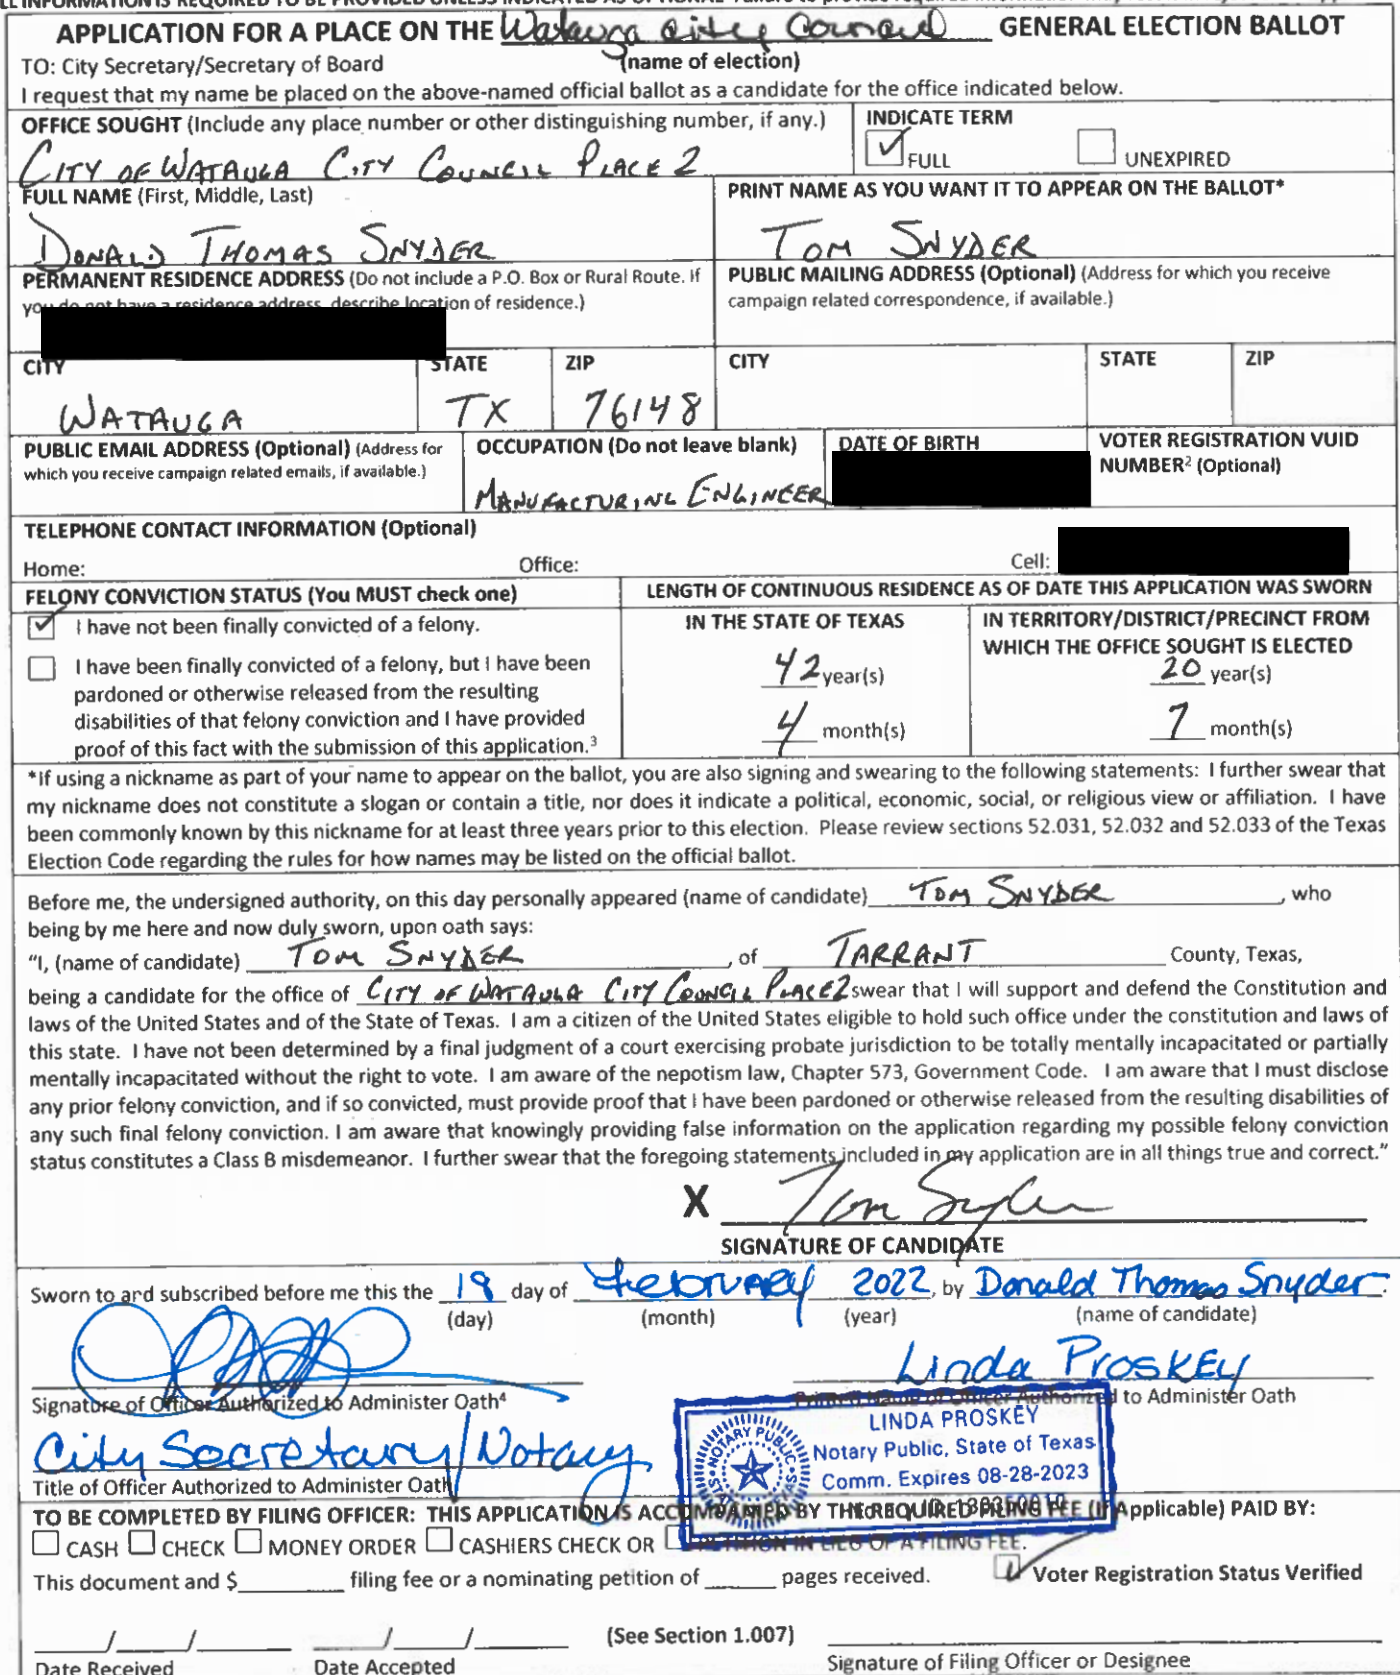 APPLICATION FOR A PLACE ON THE Watauga City Council GENERAL ELECTION BALLOT
TO: City Secretary/Secretary of Board
(name of election)
I request that my name be placed on the above-named official ballot as a candidate for the office indicated below.
OFFICE SOUGHT (Include any place number or other distinguishing number, if any.)
CITY OF WATAUGA CITY COUNCIL PLACE 2
INDICATE TERM
FULL
UNEXPIRED
FULL NAME (First, Middle, Last)
DONALD THOMAS SNYDER
PRINT NAME AS YOU WANT IT TO APPEAR ON THE BALLOT*
TOM SNYDER
PERMANENT RESIDENCE ADDRESS (Do not include a P.O. Box or Rural Route. If
you do not have a residence address, describe location of residence.)
PUBLIC MAILING ADDRESS (Optional) (Address for which you receive
campaign related correspondence, if available.)
CITY
WATAUGA
STATE
TX
ZIP
76148
CITY
STATE
ZIP
PUBLIC EMAIL ADDRESS (Optional) (Address for
which you receive campaign related emails, if available.)
OCCUPATION (Do not leave blank)
MANUFACTURING ENGINEER
DATE OF BIRTH
VOTER REGISTRATION VUID
NUMBER² (Optional)
TELEPHONE CONTACT INFORMATION (Optional)
Home: Office: Cell:
FELONY CONVICTION STATUS (You MUST check one)
I have not been finally convicted of a felony.
I have been finally convicted of a felony, but I have been
pardoned or otherwise released from the resulting
disabilities of that felony conviction and I have provided
proof of this fact with the submission of this application.³
LENGTH OF CONTINUOUS RESIDENCE AS OF DATE THIS APPLICATION WAS SWORN
IN THE STATE OF TEXAS
42 year(s)
4 month(s)
IN TERRITORY/DISTRICT/PRECINCT FROM
WHICH THE OFFICE SOUGHT IS ELECTED
20 year(s)
7 month(s)
*If using a nickname as part of your name to appear on the ballot, you are also signing and swearing to the following statements: I further swear that
my nickname does not constitute a slogan or contain a title, nor does it indicate a political, economic, social, or religious view or affiliation. I have
been commonly known by this nickname for at least three years prior to this election. Please review sections 52.031, 52.032 and 52.033 of the Texas
Election Code regarding the rules for how names may be listed on the official ballot.
Before me, the undersigned authority, on this day personally appeared (name of candidate) TOM SNYDER, who
being by me here and now duly sworn, upon oath says:
"I, (name of candidate) TOM SNYDER, of TARRANT County, Texas,
being a candidate for the office of CITY OF WATAUGA CITY COUNCIL PLACE 2 swear that I will support and defend the Constitution and
laws of the United States and of the State of Texas. I am a citizen of the United States eligible to hold such office under the constitution and laws of
this state. I have not been determined by a final judgment of a court exercising probate jurisdiction to be totally mentally incapacitated or partially
mentally incapacitated without the right to vote. I am aware of the nepotism law, Chapter 573, Government Code. I am aware that I must disclose
any prior felony conviction, and if so convicted, must provide proof that I have been pardoned or otherwise released from the resulting disabilities of
any such final felony conviction. I am aware that knowingly providing false information on the application regarding my possible felony conviction
status constitutes a Class B misdemeanor. I further swear that the foregoing statements included in my application are in all things true and correct."
X Tom Snyder
SIGNATURE OF CANDIDATE
Sworn to and subscribed before me this the day of February 2022, by Donald Thomas Snyder.
(day) (month) (year) (name of candidate)
Linda Proskey
Signature of Officer Authorized to Administer Oath⁴
Printed Name of Officer Authorized to Administer Oath
City Secretary/Notary
Title of Officer Authorized to Administer Oath
NOTARY PUBLIC
LINDA PROSKEY
Notary Public, State of Texas
Comm. Expires 08-28-2023
TO BE COMPLETED BY FILING OFFICER: THIS APPLICATION IS ACCOMPANIED BY THE REQUIRED FILING FEE (If Applicable) PAID BY:
CASH CHECK MONEY ORDER CASHIERS CHECK OR PETITION IN LIEU OF A FILING FEE.
This document and $ filing fee or a nominating petition of pages received.
Voter Registration Status Verified
(See Section 1.007)
Date Received
Date Accepted
Signature of Filing Officer or Designee